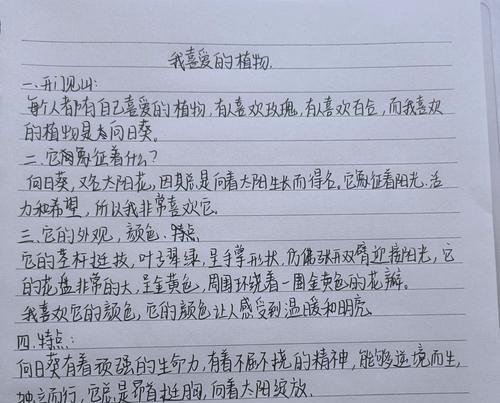 我喜爱的植物.
一.开门见山:
每个人都有自己喜爱的植物,有人喜欢玫瑰,有人喜欢百合,而我喜欢
的植物是向日葵。
二.它象征着什么?
向日葵,又名太阳花,因其总是向着太阳生长而得名。它象征着阳光.活
力和希望,所以我非常喜欢它。
三.它的外观,颜色.特点
它的茎杆挺拔,叶子翠绿,呈手掌形状,仿佛张开双臂迎接阳光,它
的花盘非常的大,呈金黄色,周围环绕着一圈金黄色的花瓣。
我喜欢它的颜色,它的颜色让人感受到温暖和明亮.
四.特点:
向日葵有着顽强的生命力,有着不屈不挠的精神,能够逆境而生,
独立而行,它总是昂首挺胸,向着太阳绽放.